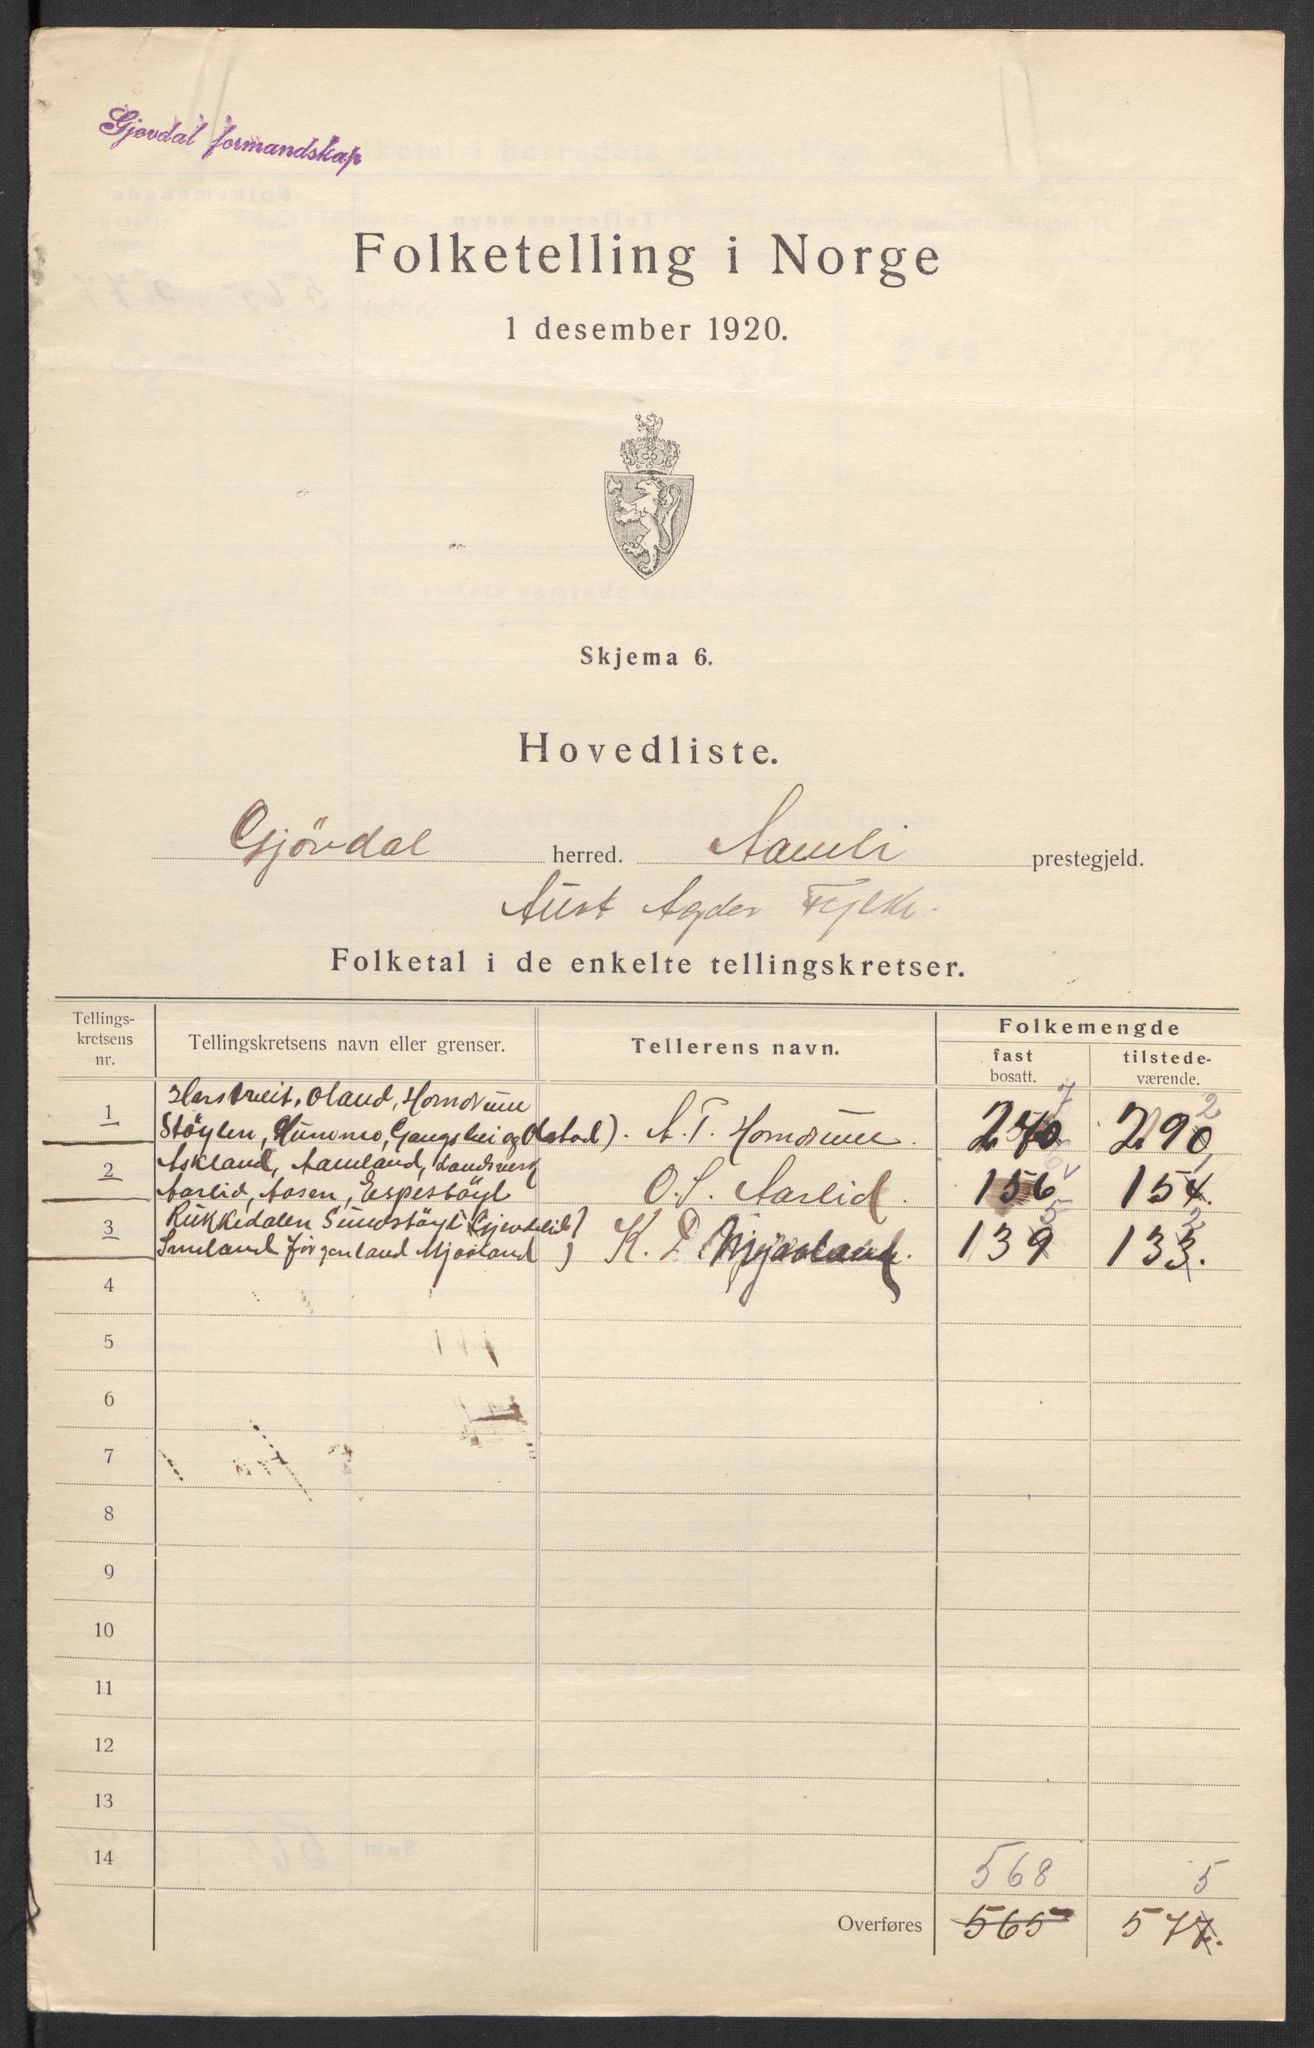 Gjevdal formandskap
Folketelling i Norge
1 desember 1920.
Skjema 6.
Hovedliste.
Gjövdal herred. Aamli prestegjeld.
Aust Agder Fylke.
Folketal i de enkelte tellingskretser.
Tellings-
kretsens
nr.
Tellingskretsens navn eller grenser.
Tellerens navn.
Folkemengde
fast
bosatt.
tilstede-
værende.
1 Harstveit, Oland, Homdrum
Stöylen, Hunomo, Gangshei og Olstad). A. T. Homdrum. 270 290 2
2 Askland, Aamland, Landsverk
Aarlid, Aasen, Espestöyl O. S. Aarlid. 156 154.
3 Rukkedalen Sundstöyl
Smeland Jörgenland Mjösland K. Mjösland. 139 5 133. 2
4
5
6
7
8
9
10
11
12
13
14
568 5
Overføres 565 577.